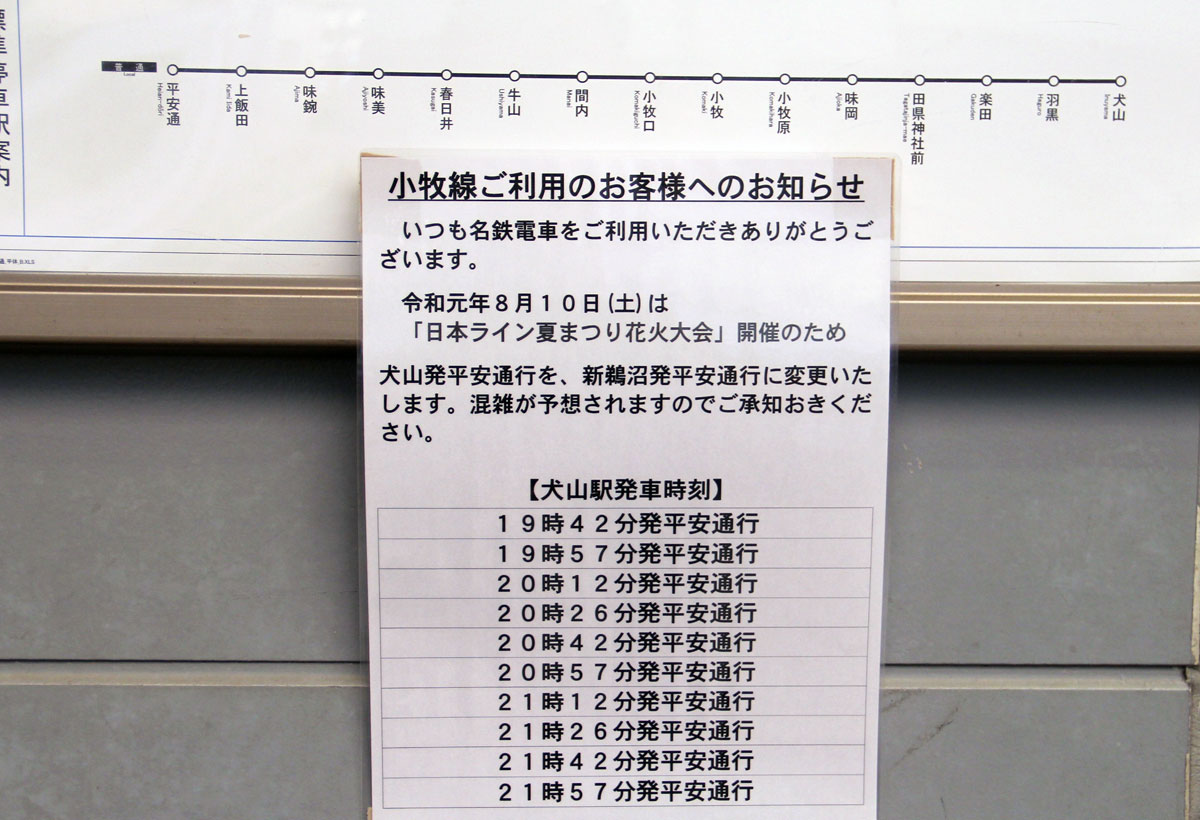 標準停車駅案内
普通
Local
平安通
Heian-dōri
上飯田
Kami Iida
味鋺
Ajima
味美
Ajiyoshi
春日井
Kasugai
牛山
Ushiyama
間内
Manai
小牧口
Komakiguchi
小牧
Komaki
小牧原
Komakihara
味岡
Ajioka
田県神社前
Tagatajinja-mae
楽田
Gakuden
羽黒
Haguro
犬山
Inuyama
小牧線ご利用のお客様へのお知らせ
いつも名鉄電車をご利用いただきありがとうご
ざいます。
令和元年8月10日(土)は
「日本ライン夏まつり花火大会」開催のため
犬山発平安通行を、新鵜沼発平安通行に変更いた
します。混雑が予想されますのでご承知おきくだ
さい。
【犬山駅発車時刻】
19時42分発平安通行
19時57分発平安通行
20時12分発平安通行
20時26分発平安通行
20時42分発平安通行
20時57分発平安通行
21時12分発平安通行
21時26分発平安通行
21時42分発平安通行
21時57分発平安通行